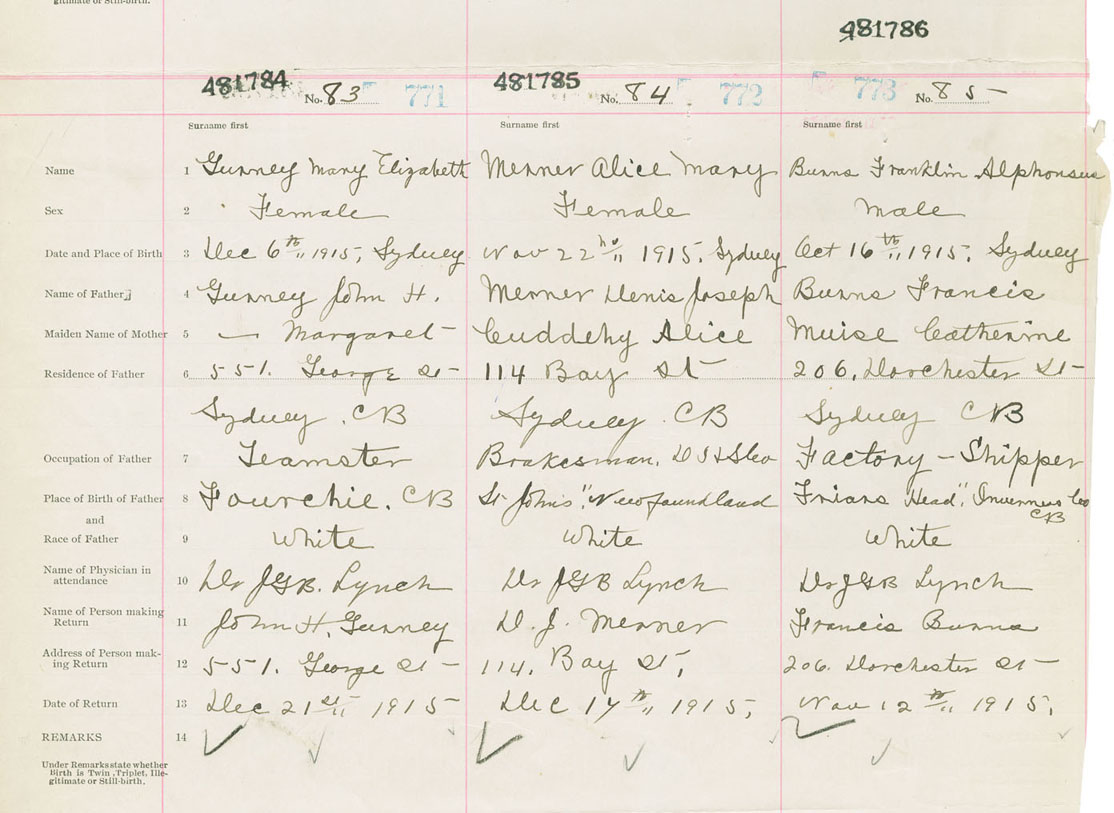 gitimate or Still-birth.
481784 481785 481786
No. 83 771 No. 84 772 773 No. 85
Surname first Surname first Surname first
Name 1 Gurney Mary Elizabeth Merner Alice Mary Burns Franklin Alphonsus
Sex 2 Female Female Male
Date and Place of Birth 3 Dec 6th 1915, Sydney Nov 22nd 1915, Sydney Oct 16th 1915, Sydney
Name of Father 4 Gurney John H. Merner Denis Joseph Burns Francis
Maiden Name of Mother 5 — Margaret Cuddehy Alice Muise Catherine
Residence of Father 6 551. George St 114 Bay St 206. Dorchester St
Sydney. CB Sydney. CB Sydney CB
Occupation of Father 7 Teamster Brakesman, D I & S Co Factory - Shipper
Place of Birth of Father 8 Fourchie. CB St Johns", Newfoundland Friars "Head", Inverness Co
and CB
Race of Father 9 White White White
Name of Physician in
attendance 10 Dr JGB. Lynch Dr JGB Lynch Dr JGB Lynch
Name of Person making
Return 11 John H. Gurney D. J. Merner Francis Burns
Address of Person mak-
ing Return 12 551. George St 114, Bay St, 206. Dorchester St
Date of Return 13 Dec 21st 1915 Dec 14th 1915, Nov 12th 1915,
REMARKS 14
Under Remarks state whether
Birth is Twin, Triplet, Ille-
gitimate or Still-birth.